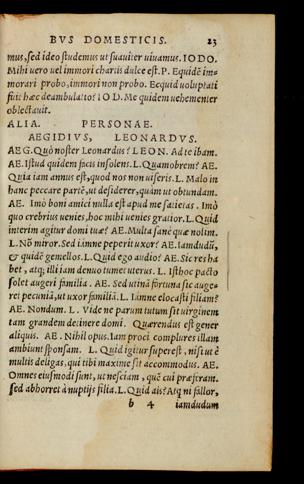 BVS DOMESTICIS. 23
mus, sed ideo studemus ut suauiter uiuamus. IODO.
Mihi uero uel immori chartis dulce est. P. Equidē im-
morari probo, immori non probo. Ecquid uoluptati
fuit hæc deambulatio? IOD. Me quidem uehementer
oblectauit.
ALIA. PERSONAE.
AEGIDIVS, LEONARDVS.
AEG. Quò noster Leonardus? LEON. Ad te ibam.
AE. Istud quidem facis insolens. L. Quamobrem? AE.
Quia iam annus est, quod nos non uiseris. L. Malo in
hanc peccare partē, ut desiderer, quàm ut obtundam.
AE. Imò boni amici nulla est apud me satietas. Imò
quo crebrius uenies, hoc mihi uenies gratior. L. Quid
interim agitur domi tuæ? AE. Multa sanè quæ nolim.
L. Nō miror. Sed iamne peperit uxor? AE. Iamdudū,
& quidē gemellos. L. Quid ego audio? AE. Sic res ha
bet, atq; illi iam denuo tumet uterus. L. Isthoc pacto
solet augeri familia. AE. Sed utinā fortuna sic auge-
ret pecuniā, ut uxor familiā. L. Iamne elocasti filiam?
AE. Nondum. L. Vide ne parum tutum sit uirginem
tam grandem detinere domi. Quærendus est gener
aliquis. AE. Nihil opus. Iam proci complures illam
ambiunt sponsam. L. Quid igitur superest, nisi ut è
multis deligas, qui tibi maxime sit accommodus. AE.
Omnes eiusmodi sunt, ut nesciam, quē cui præferam.
sed abhorret à nuptijs filia. L. Quid ais? Atq ni fallor,
b 4 iamdudum